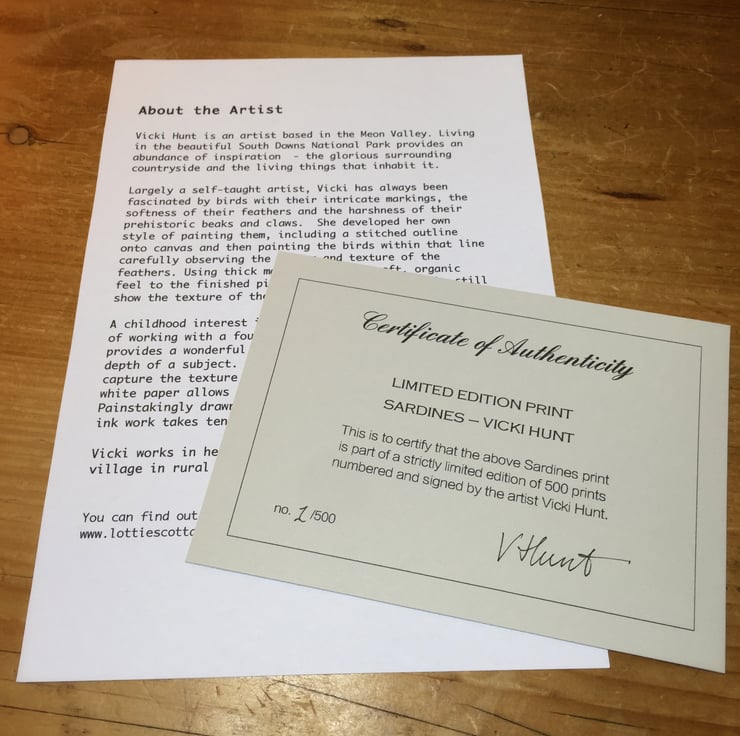 About the Artist
Vicki Hunt is an artist based in the Meon Valley. Living
in the beautiful South Downs National Park provides an
abundance of inspiration - the glorious surrounding
countryside and the living things that inhabit it.
Largely a self-taught artist, Vicki has always been
fascinated by birds with their intricate markings, the
softness of their feathers and the harshness of their
prehistoric beaks and claws. She developed her own
style of painting them, including a stitched outline
onto canvas and then painting the birds within that line
carefully observing the and texture of the
feathers. Using thick organic
feel to the finished
show the texture of
A childhood interest
of working with a
provides a wonderful
depth of a subject.
capture the texture
white paper allows
Painstakingly
ink work takes
Vicki works in
village in rural
You can find out
Certificate of Authenticity
LIMITED EDITION PRINT
SARDINES – VICKI HUNT
This is to certify that the above Sardines print
is part of a strictly limited edition of 500 prints
numbered and signed by the artist Vicki Hunt.
no. 1/500
V Hunt